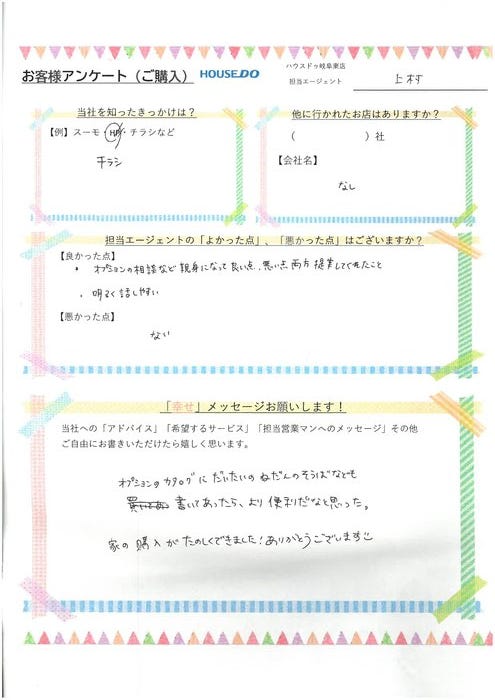 お客様アンケート（ご購入） HOUSEDO
ハウスドゥ岐阜東店
担当エージェント 上村
当社を知ったきっかけは？
【例】スーモ・HP・チラシなど
チラシ
他に行かれたお店はありますか？
（ ）社
【会社名】
なし
担当エージェントの「よかった点」、「悪かった点」はございますか？
【良かった点】
・オプションの相談など親身になって良い点、悪い点両方提案してくれたこと
・明るく話しやすい
【悪かった点】
ない
「幸せ」メッセージお願いします！
当社への「アドバイス」「希望するサービス」「担当営業マンへのメッセージ」その他
ご自由にお書きいただけたら嬉しく思います。
オプションのカタログにだいたいのねだんのそうばなども
書いてあったら、より便利だなと思った。
家の購入がたのしくできました！ありがとうございます